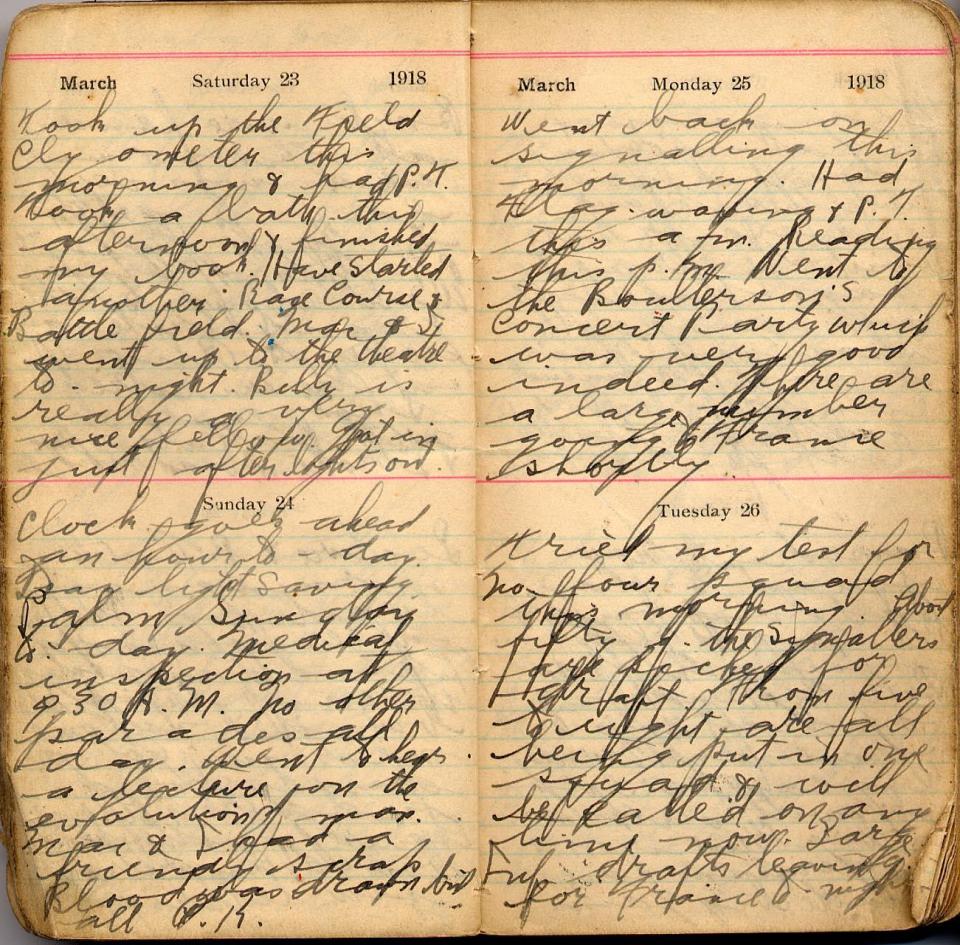 March Saturday 23 1918
Took up the Field
Cly ometer this
morning & had P.T.
Took a bath this
afternoon & finished
my book. Have started
another. Race Course &
Battle field. Mac & I
went up to the theatre
to-night. Billy is
really a very
nice fellow. Got in
just after lights out.
Sunday 24
Clock goes ahead
an hour to-day.
Day light saving.
Palm Sunday
to day. Medical
inspection at
9.30 A.M. No other
parades all
day. Went to hear
a lecture on the
evolution of man.
Mac & I had a
friendly scrap
Blood was drawn but
all O.K.
March Monday 25 1918
Went back on
signalling this
morning. Had
Flag-waving & P.T.
this a.m. Reading
this p.m. Went to
the Boulterson's
Concert Party which
was very good
indeed. There are
a large number
going to France
shortly.
Tuesday 26
Tried my test for
No. four squad
this morning. About
fifty of the Signallers
are picked for
draft. From five
to eight are all
being put in one
squad & will
be called on any
time now. Large
drafts leaving
for France to night.